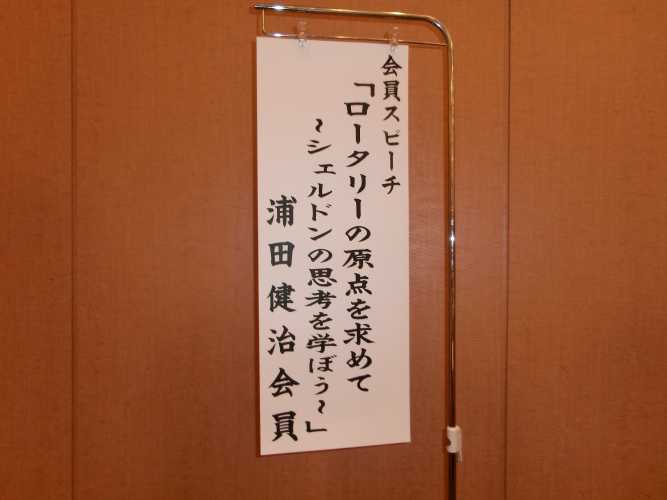 会員スピーチ
「ロータリーの原点を求めて
～シェルドンの思考を学ぼう～」
浦田健治会員